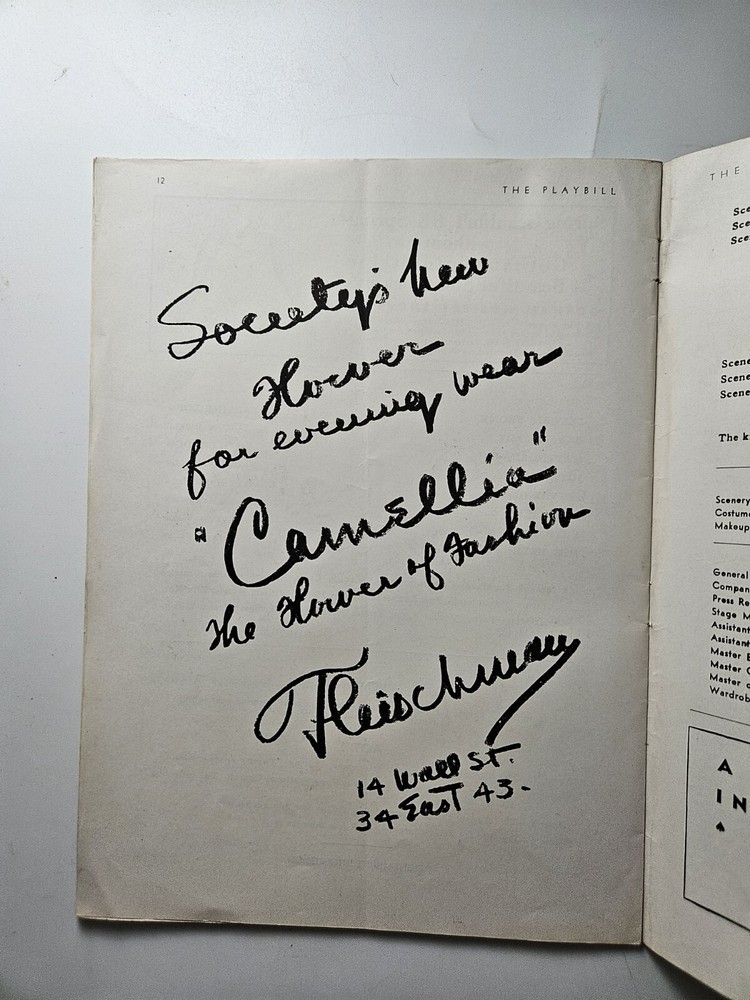 12
THE PLAYBILL
Society's new
Flower
for evening wear
"Camellia"
The Flower of Fashion
Fleischman
14 Wall St.
34 East 43.
THE
Sce
Sce
Sce
Scene
Scene
Scene
The k
Scenery
Costume
Makeup
General
Compan
Press Re
Stage M
Assistant
Assistant
Master
Master
Master
Wardrob
A
IN